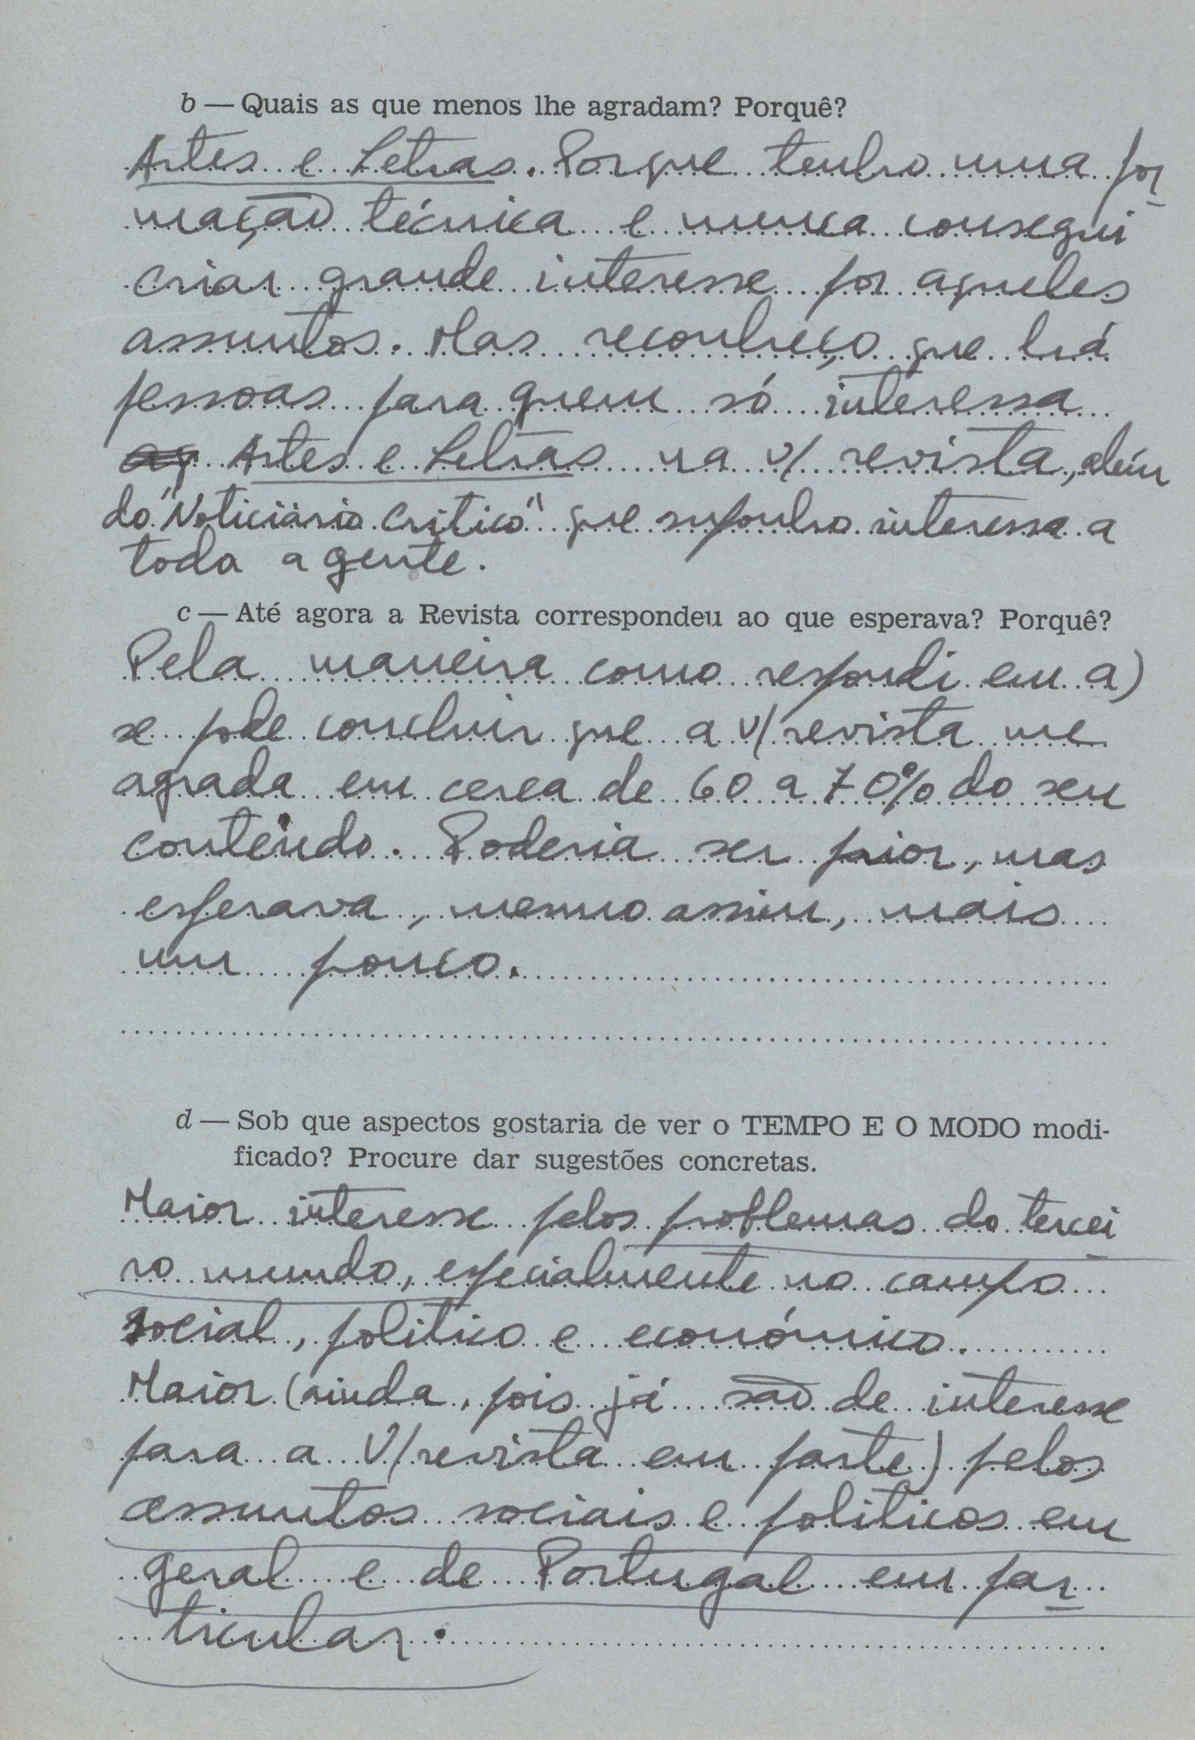 b — Quais as que menos lhe agradam? Porquê?
Artes e Letras. Porque tenho uma for
mação técnica e nunca consegui
criar grande interesse por aqueles
assuntos. Mas reconheço que há
pessoas para quem só interessa
Artes e Letras na V/ revista, além
do "Noticiário Crítico" que suponho interessa a
toda a gente.
c — Até agora a Revista correspondeu ao que esperava? Porquê?
Pela maneira como respondi em a)
se pode concluir que a V/ revista me
agrada em cerca de 60 a 70% do seu
conteúdo. Poderia ser pior, mas
esperava, mesmo assim, mais
um pouco.
d — Sob que aspectos gostaria de ver o TEMPO E O MODO modi-
ficado? Procure dar sugestões concretas.
Maior interesse pelos problemas do tercei
ro mundo, especialmente no campo
social, político e económico.
Maior (ainda, pois já são de interesse
para a V/ revista em parte) pelos
assuntos sociais e políticos em
geral e de Portugal em par
ticular.